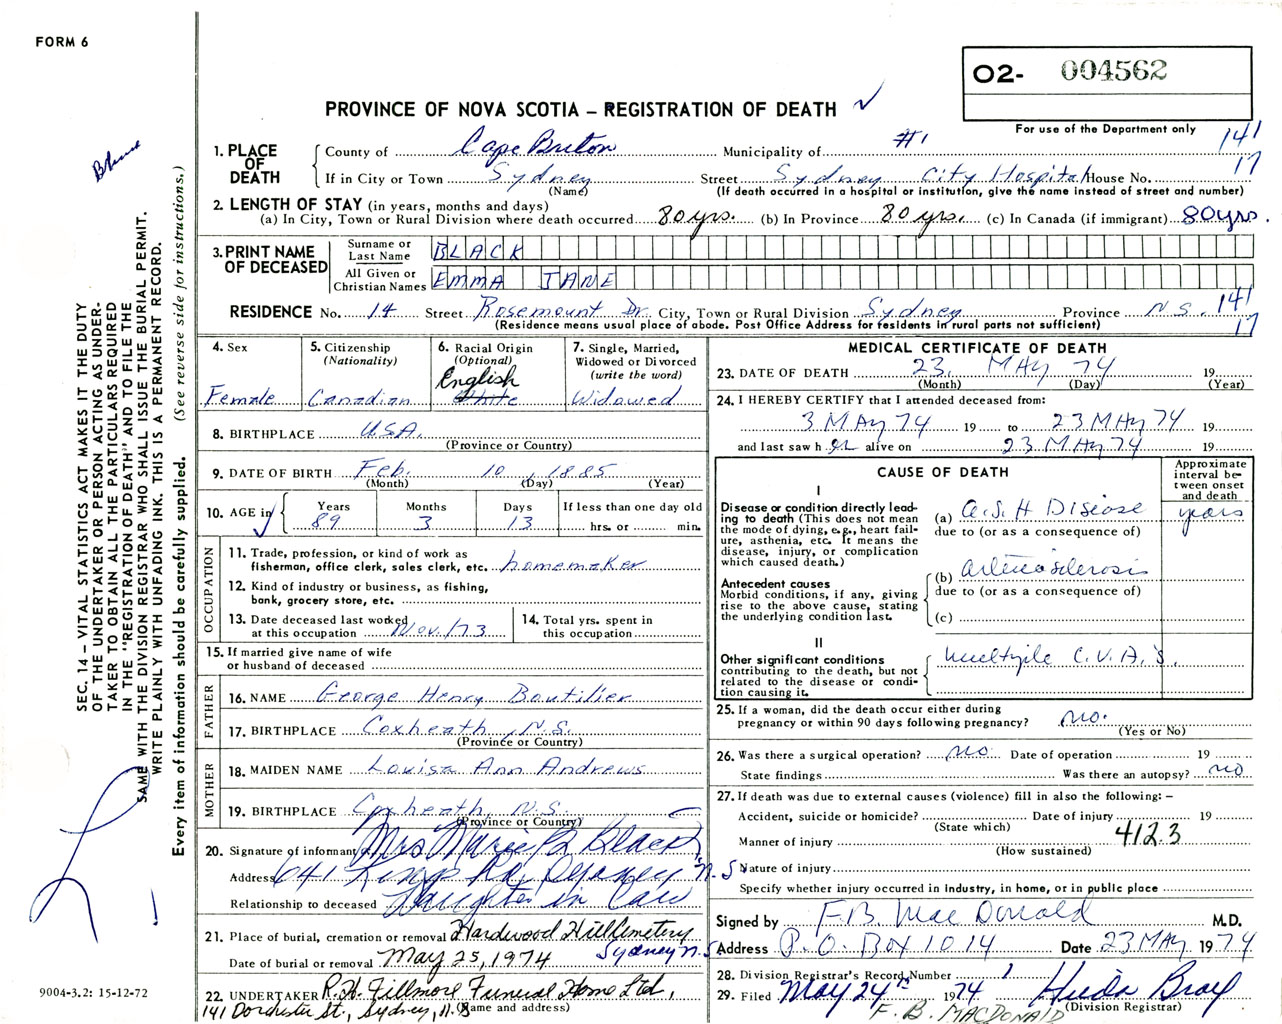 FORM 6
O2- 004562
PROVINCE OF NOVA SCOTIA – REGISTRATION OF DEATH ✓
For use of the Department only
1. PLACE OF DEATH
County of Cape Breton Municipality of #1 141
If in City or Town Sydney Street Sydney City Hospital House No. 17
(Name) (If death occurred in a hospital or institution, give the name instead of street and number)
2. LENGTH OF STAY (in years, months and days)
(a) In City, Town or Rural Division where death occurred 80 yrs. (b) In Province 80 yrs. (c) In Canada (if immigrant) 80 yrs.
3. PRINT NAME OF DECEASED
Surname or Last Name BLACK
All Given or Christian Names EMMA JANE
RESIDENCE No. 14 Street Rosemount Dr. City, Town or Rural Division Sydney Province N.S. 141
(Residence means usual place of abode. Post Office Address for residents in rural parts not sufficient) 17
4. Sex Female
5. Citizenship (Nationality) Canadian
6. Racial Origin (Optional) English White
7. Single, Married, Widowed or Divorced (write the word) Widowed
8. BIRTHPLACE U.S.A.
(Province or Country)
9. DATE OF BIRTH Feb. 10, 1885
(Month) (Day) (Year)
10. AGE in Years 89 Months 3 Days 13 If less than one day old hrs. or min.
OCCUPATION
11. Trade, profession, or kind of work as fisherman, office clerk, sales clerk, etc. homemaker
12. Kind of industry or business, as fishing, bank, grocery store, etc.
13. Date deceased last worked at this occupation Nov./73
14. Total yrs. spent in this occupation
15. If married give name of wife or husband of deceased
FATHER
16. NAME George Henry Boutilier
17. BIRTHPLACE Coxheath, N.S.
(Province or Country)
MOTHER
18. MAIDEN NAME Louisa Ann Andrews
19. BIRTHPLACE Coxheath, N.S.
(Province or Country)
20. Signature of informant Mrs Marie B Black
Address 641 Kings Rd, Sydney N.S
Relationship to deceased Daughter in Law
21. Place of burial, cremation or removal Hardwood Hill Cemetery
Sydney N.S.
Date of burial or removal May 25, 1974
22. UNDERTAKER R.H. Fillmore Funeral Home Ltd,
141 Dorchester St., Sydney, N.S (Name and address)
MEDICAL CERTIFICATE OF DEATH
23. DATE OF DEATH 23 MAY 74 19
(Month) (Day) (Year)
24. I HEREBY CERTIFY that I attended deceased from:
3 MAY 74 19 to 23 MAY 74 19
and last saw h er alive on 23 MAY 74 19
CAUSE OF DEATH
Approximate interval between onset and death
I
Disease or condition directly leading to death (This does not mean the mode of dying, e.g., heart failure, asthenia, etc. It means the disease, injury, or complication which caused death.)
(a) A.S.H Disease years
due to (or as a consequence of)
Antecedent causes
Morbid conditions, if any, giving rise to the above cause, stating the underlying condition last.
(b) arteriosclerosis
due to (or as a consequence of)
(c)
II
Other significant conditions contributing to the death, but not related to the disease or condition causing it.
multiple C.V.A.'s.
25. If a woman, did the death occur either during pregnancy or within 90 days following pregnancy? no.
(Yes or No)
26. Was there a surgical operation? no Date of operation 19
State findings Was there an autopsy? no
27. If death was due to external causes (violence) fill in also the following: –
Accident, suicide or homicide? Date of injury 19
(State which)
Manner of injury 412.3
(How sustained)
Nature of injury
Specify whether injury occurred in industry, in home, or in public place
Signed by F.B. MacDonald M.D.
Address P.O. Box 1014 Date 23 MAY 1974
28. Division Registrar's Record Number 1
29. Filed May 24th 1974 Huida Bray
(Division Registrar)
F. B. MACDONALD
SEC. 14 – VITAL STATISTICS ACT MAKES IT THE DUTY
OF THE UNDERTAKER OR PERSON ACTING AS UNDER-
TAKER TO OBTAIN ALL THE PARTICULARS REQUIRED
IN THE "REGISTRATION OF DEATH" AND TO FILE THE
SAME WITH THE DIVISION REGISTRAR WHO SHALL ISSUE THE BURIAL PERMIT.
WRITE PLAINLY WITH UNFADING INK. THIS IS A PERMANENT RECORD.
Every item of information should be carefully supplied. (See reverse side for instructions.)
9004-3.2: 15-12-72